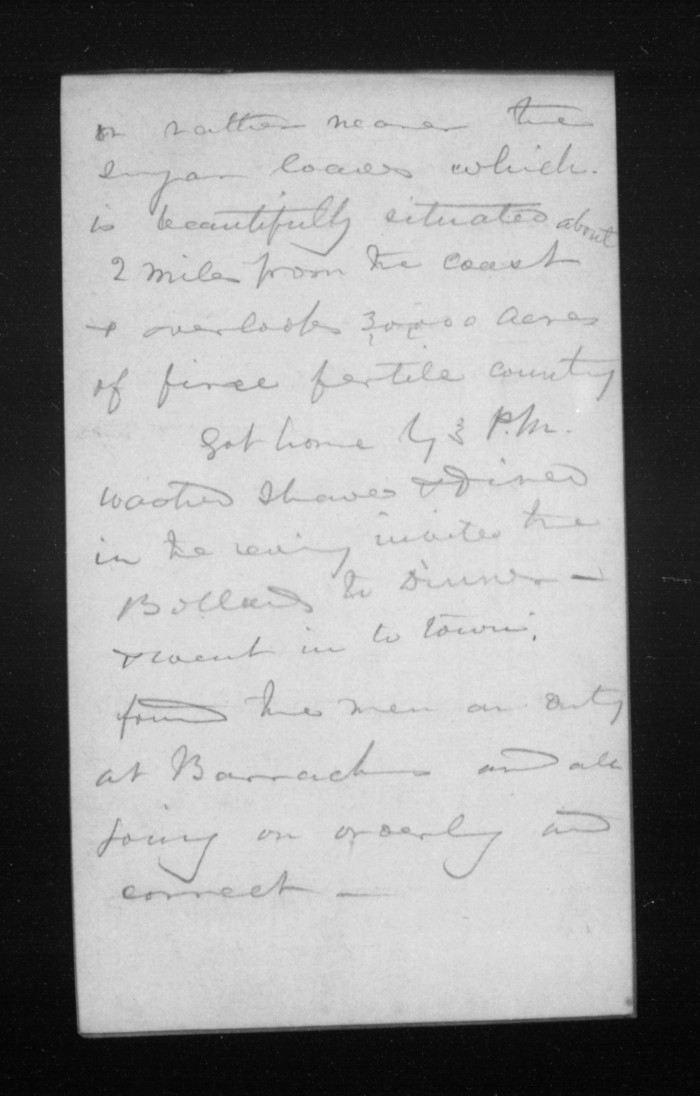 or rather nearer the
Sugar loaves which.
is beautifully situated about
2 miles from the coast
& overlooks 30,000 acres
of fine fertile country
Got home by 3 P.M.
washed shaved & dined
in the evening invited the
to Dinner —
& went in to town.
found the men on duty
at Barracks and all
going on orderly and
correct —